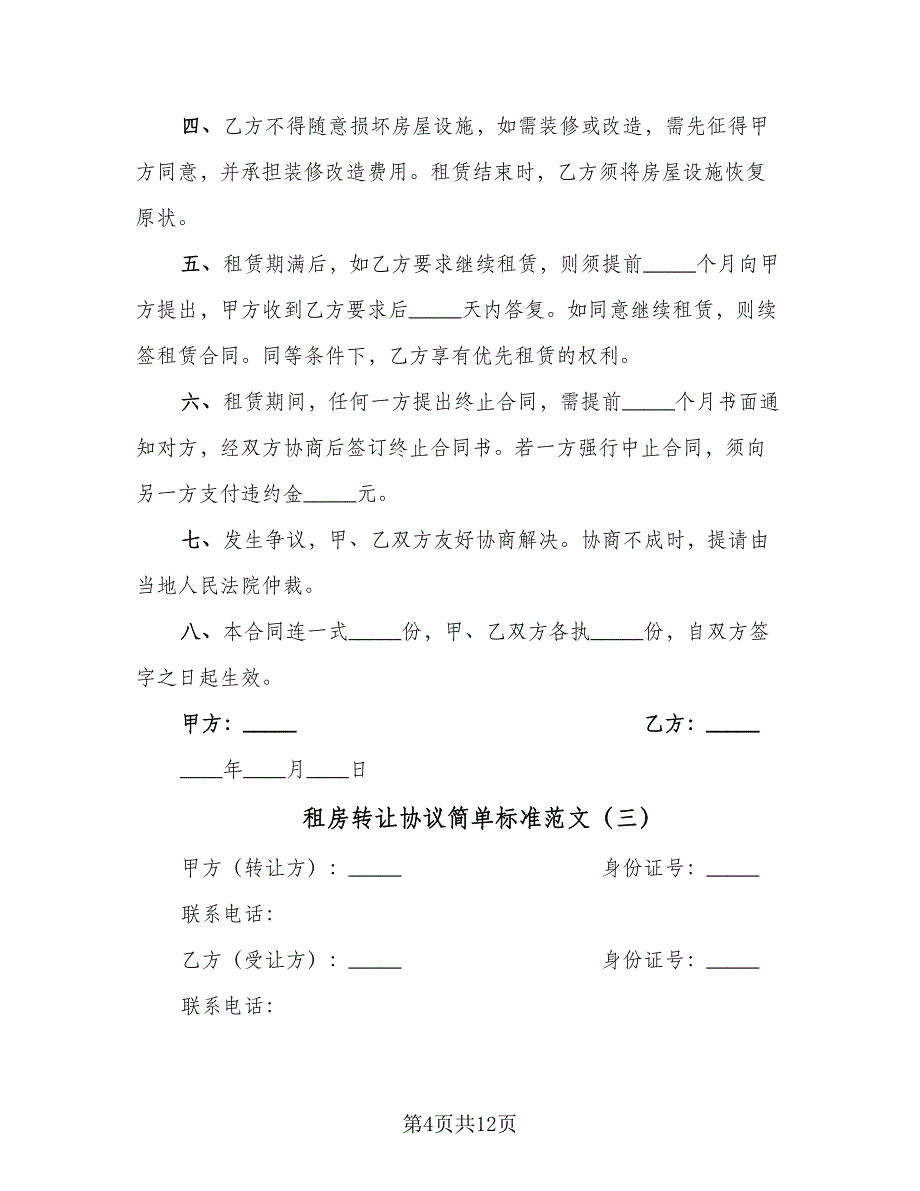 四、乙方不得随意损坏房屋设施，如需装修或改造，需先征得甲
方同意，并承担装修改造费用。租赁结束时，乙方须将房屋设施恢复
原状。
五、租赁期满后，如乙方要求继续租赁，则须提前_____个月向甲
方提出，甲方收到乙方要求后_____天内答复。如同意继续租赁，则续
签租赁合同。同等条件下，乙方享有优先租赁的权利。
六、租赁期间，任何一方提出终止合同，需提前_____个月书面通
知对方，经双方协商后签订终止合同书。若一方强行中止合同，须向
另一方支付违约金_____元。
七、发生争议，甲、乙双方友好协商解决。协商不成时，提请由
当地人民法院仲裁。
八、本合同连一式_____份，甲、乙双方各执_____份，自双方签
字之日起生效。
甲方：_____ 乙方：_____
____年____月____日
租房转让协议简单标准范文（三）
甲方（转让方）：_____ 身份证号：_____
联系电话：
乙方（受让方）：_____ 身份证号：_____
联系电话：
第4页共12页